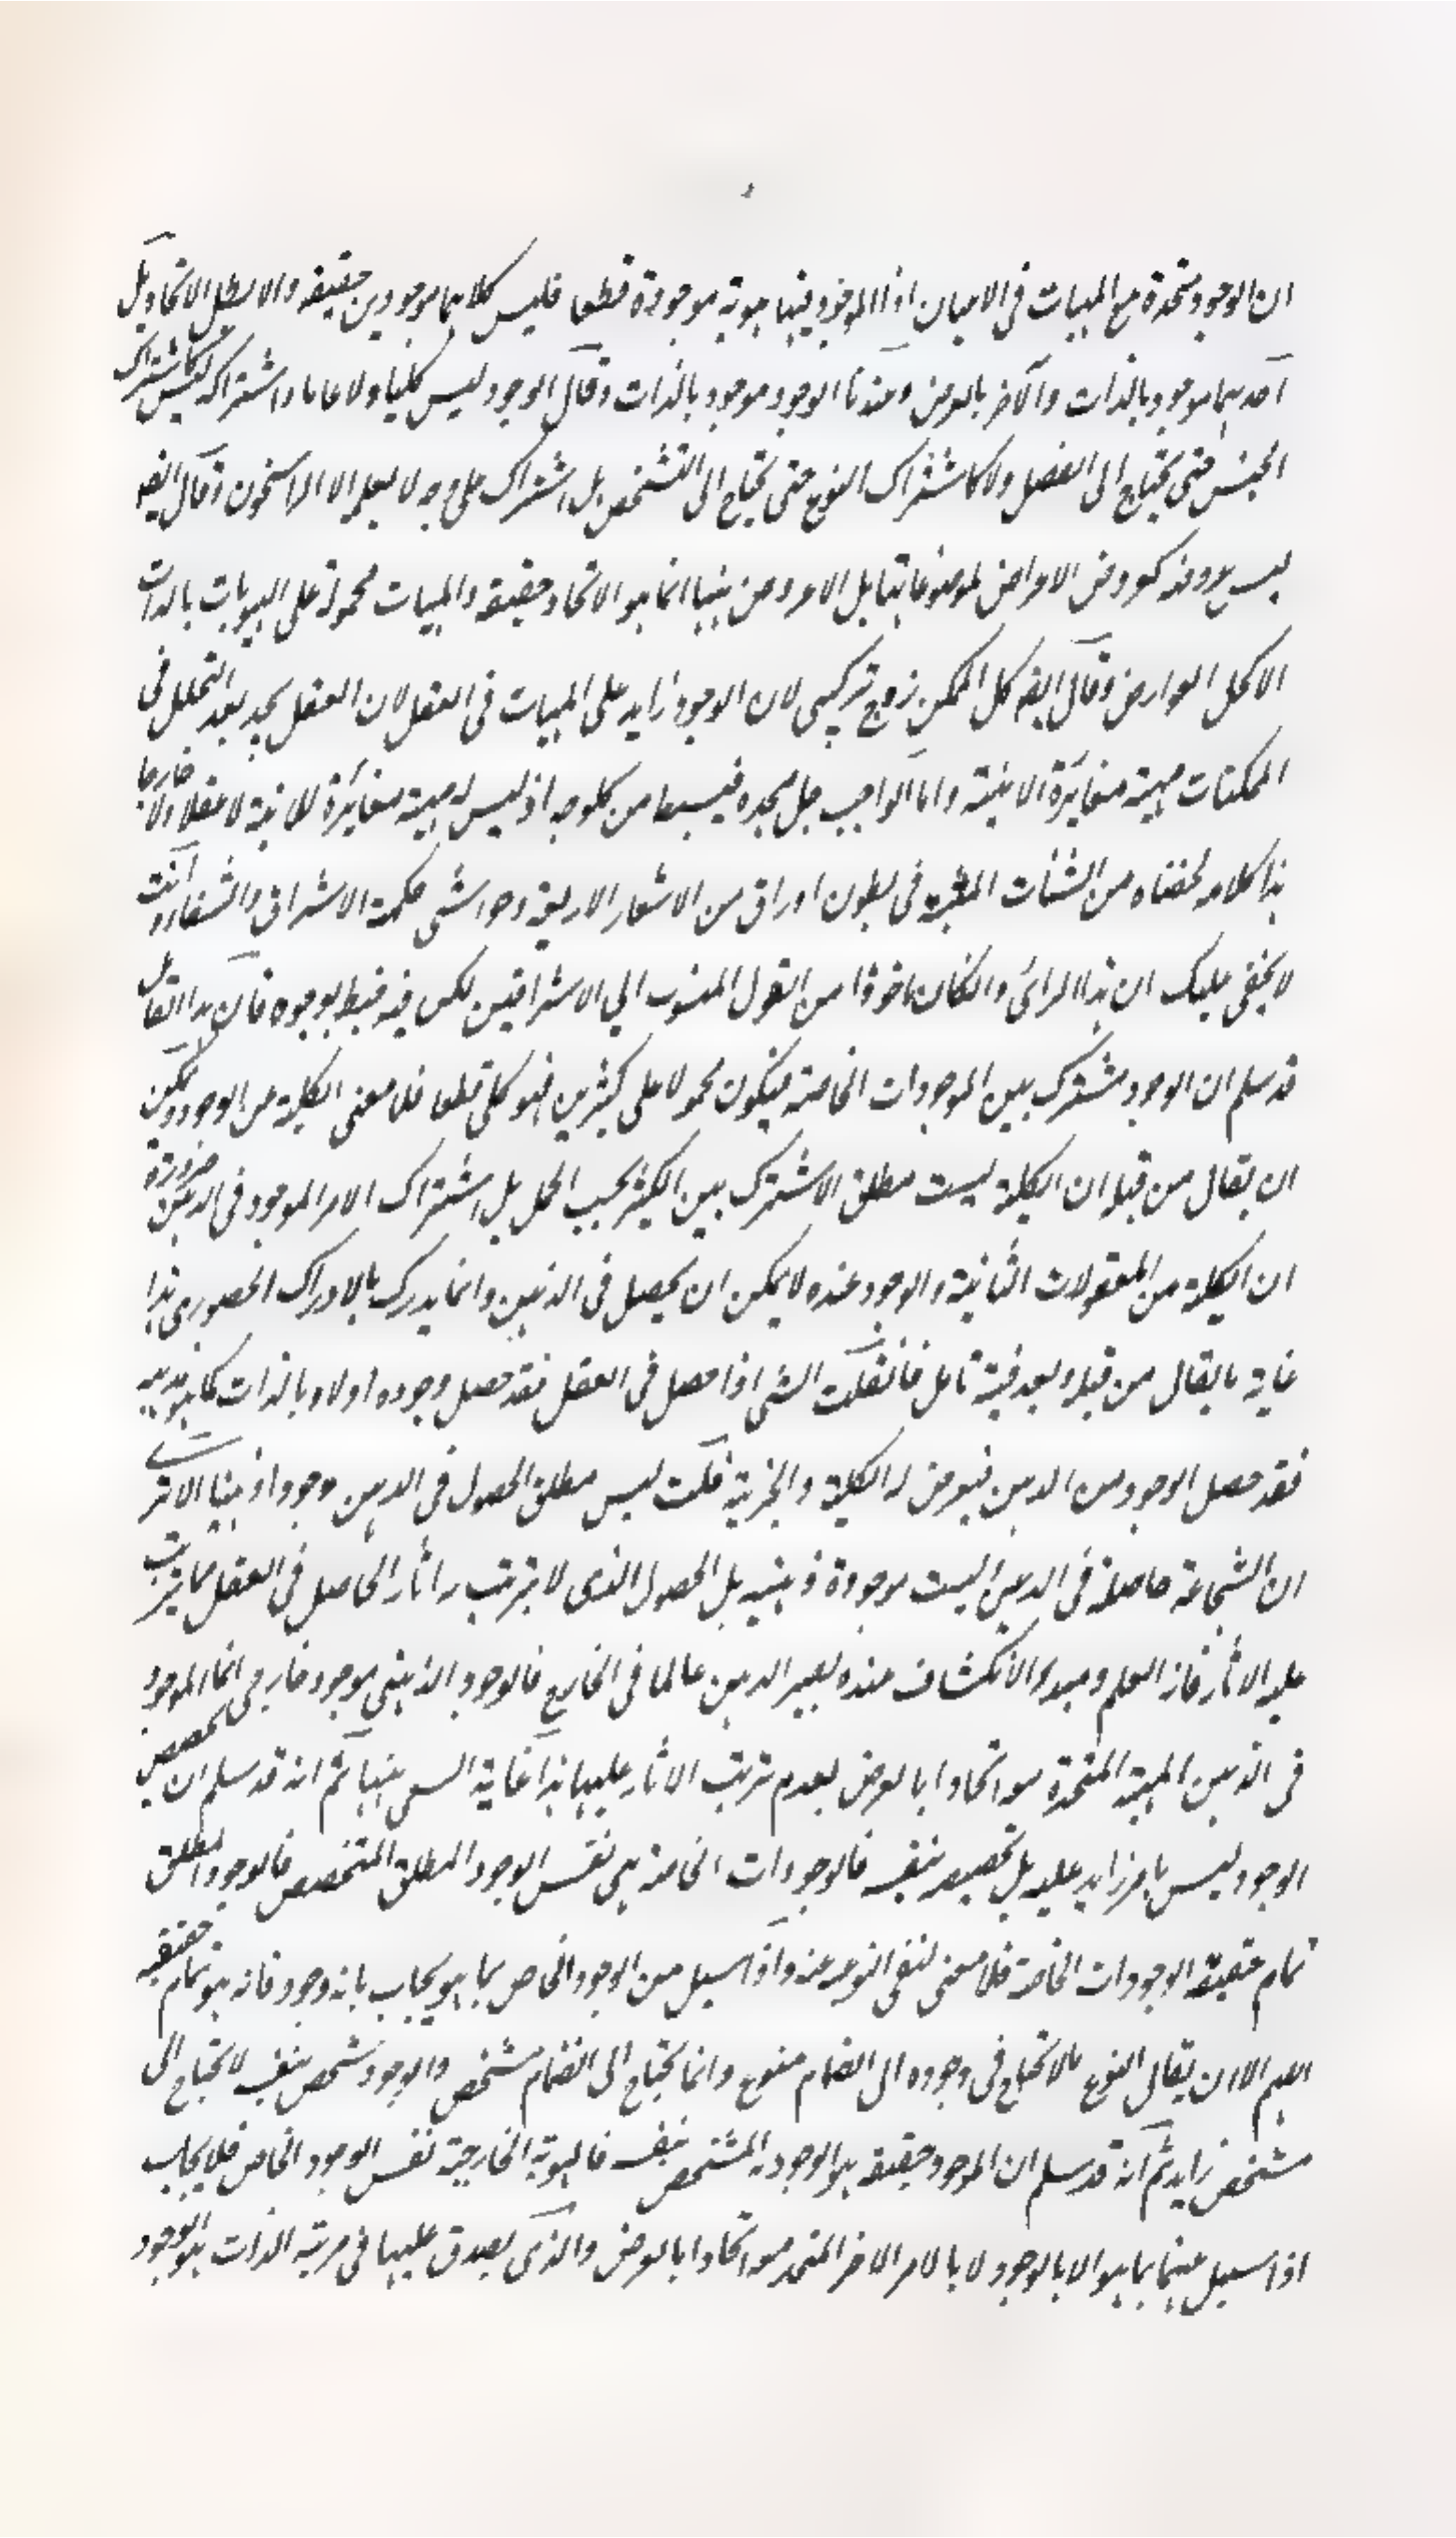 ان الوجود متحدة مع المهيات في الاعيان اذ الموجود فيها هوية موجودة قطعا فليس كلاهما موجودين حقيقة والا بطل الاتحاد بل
احدهما موجود بالذات والآخر بالعرض وعندنا الوجود موجود بالذات وقال الوجود ليس كليا ولا عاما واشتراكه ليس كاشتراك
الجنس حتى يحتاج الى الفصل ولا كاشتراك النوع حتى يحتاج الى التشخص بل اشتراك على وجه لا يعلمه الا الراسخون وقال ايضا
ليس عروضه كعروض الاعراض لموضوعاتها بل الامر ومن بينهما انما هو الاتحاد حقيقة والمهيات محمولة على الهويات بالذات
الا كحمل العوارض وقال ايضا كل الممكن زوج تركيبي لان الوجود زايد على المهيات في العقل لان العقل يجد بعد التحليل في
الممكنات مهية مغايرة الانية واما الواجب جل مجده فبسيط من كل وجه اذ ليس له مهية مغايرة للانية لا عقلا ولا خارجا
هذا كلامه لخصناه من الشتات المنبثة في بطون اوراق من الاسفار الاربعة وحواشي حكمة الاشراق والشفاء وانت
لا يخفى عليك ان هذا الرائ وان كان ماخوذا من القول المنسوب الى الاشراقيين لكن فيه خبط بوجوه فان هذا القائل
قد سلم ان الوجود مشترك بين الموجودات الخاصة فيكون محمولا على كثيرين فهو كلي قطعا فلا معنى الكلية من الوجود ويمكن
ان يقال من قبله ان الكلية ليست مطلق الاشتراك بين الكثير بحسب الحمل بل اشتراك الامر الموجود في الذهن ضرورة
ان الكلية من المعقولات الثانية والوجود عنده لا يمكن ان يحصل في الذهن وانما يدرك بالادراك الحضوري هذا
غاية ما يقال من قبله وبعد فيه تامل فان قلت الشي اذا حصل في العقل فقد حصل وجوده اولا وبالذات كما هو مذهبه
فقد حصل الوجود من الذهن فيعرض له الكلية والجزئية قلت ليس مطلق الحصول في الذهن وجودا ذهنيا الا ترى
ان الشجاعة حاصلة في الذهن ليست موجودة ذهنية بل الحصول الذي لا يترتب به اثار الحاصل في العقل مما يترتب
عليه الاثار فان العلم ومبدء الانكشاف عنده يصير الذهن عالما في الخارج فالوجود الذهني موجود خارجي انما الموجود
في الذهن المهية المتحدة معه اتحادا بالعرض لعدم ترتب الاثار عليها هذا غاية السعي ههنا ثم انه قد سلم ان تخصص
الوجود ليس بامر زايد عليه بل تخصصه بنفسه فالوجودات الخاصة هي نفس الوجود المطلق المتخصص فالوجود المطلق
تمام حقيقة الوجودات الخاصة فلا معنى لنفي النوعية عنه واذا سيل من الوجود الخاص بما هو يجاب بانه وجود فانه هو تمام حقيقته
اللهم الا ان يقال النوع ما لا يحتاج في وجوده الى انضمام منوع وانما يحتاج الى انضمام مشخص والوجود شخص بنفسه لا يحتاج الى
مشخص زايد ثم انه قد سلم ان الموجود حقيقة هو الوجود المتشخص بنفسه فالهوية الخارجية نفس الوجود الخاص فلا يجاب
اذا سيل عنها بما هو الا بالوجود لا بالامر الاخر المتحد معه اتحادا بالعرض والذي يصدق عليها في مرتبة الذات هو الوجود